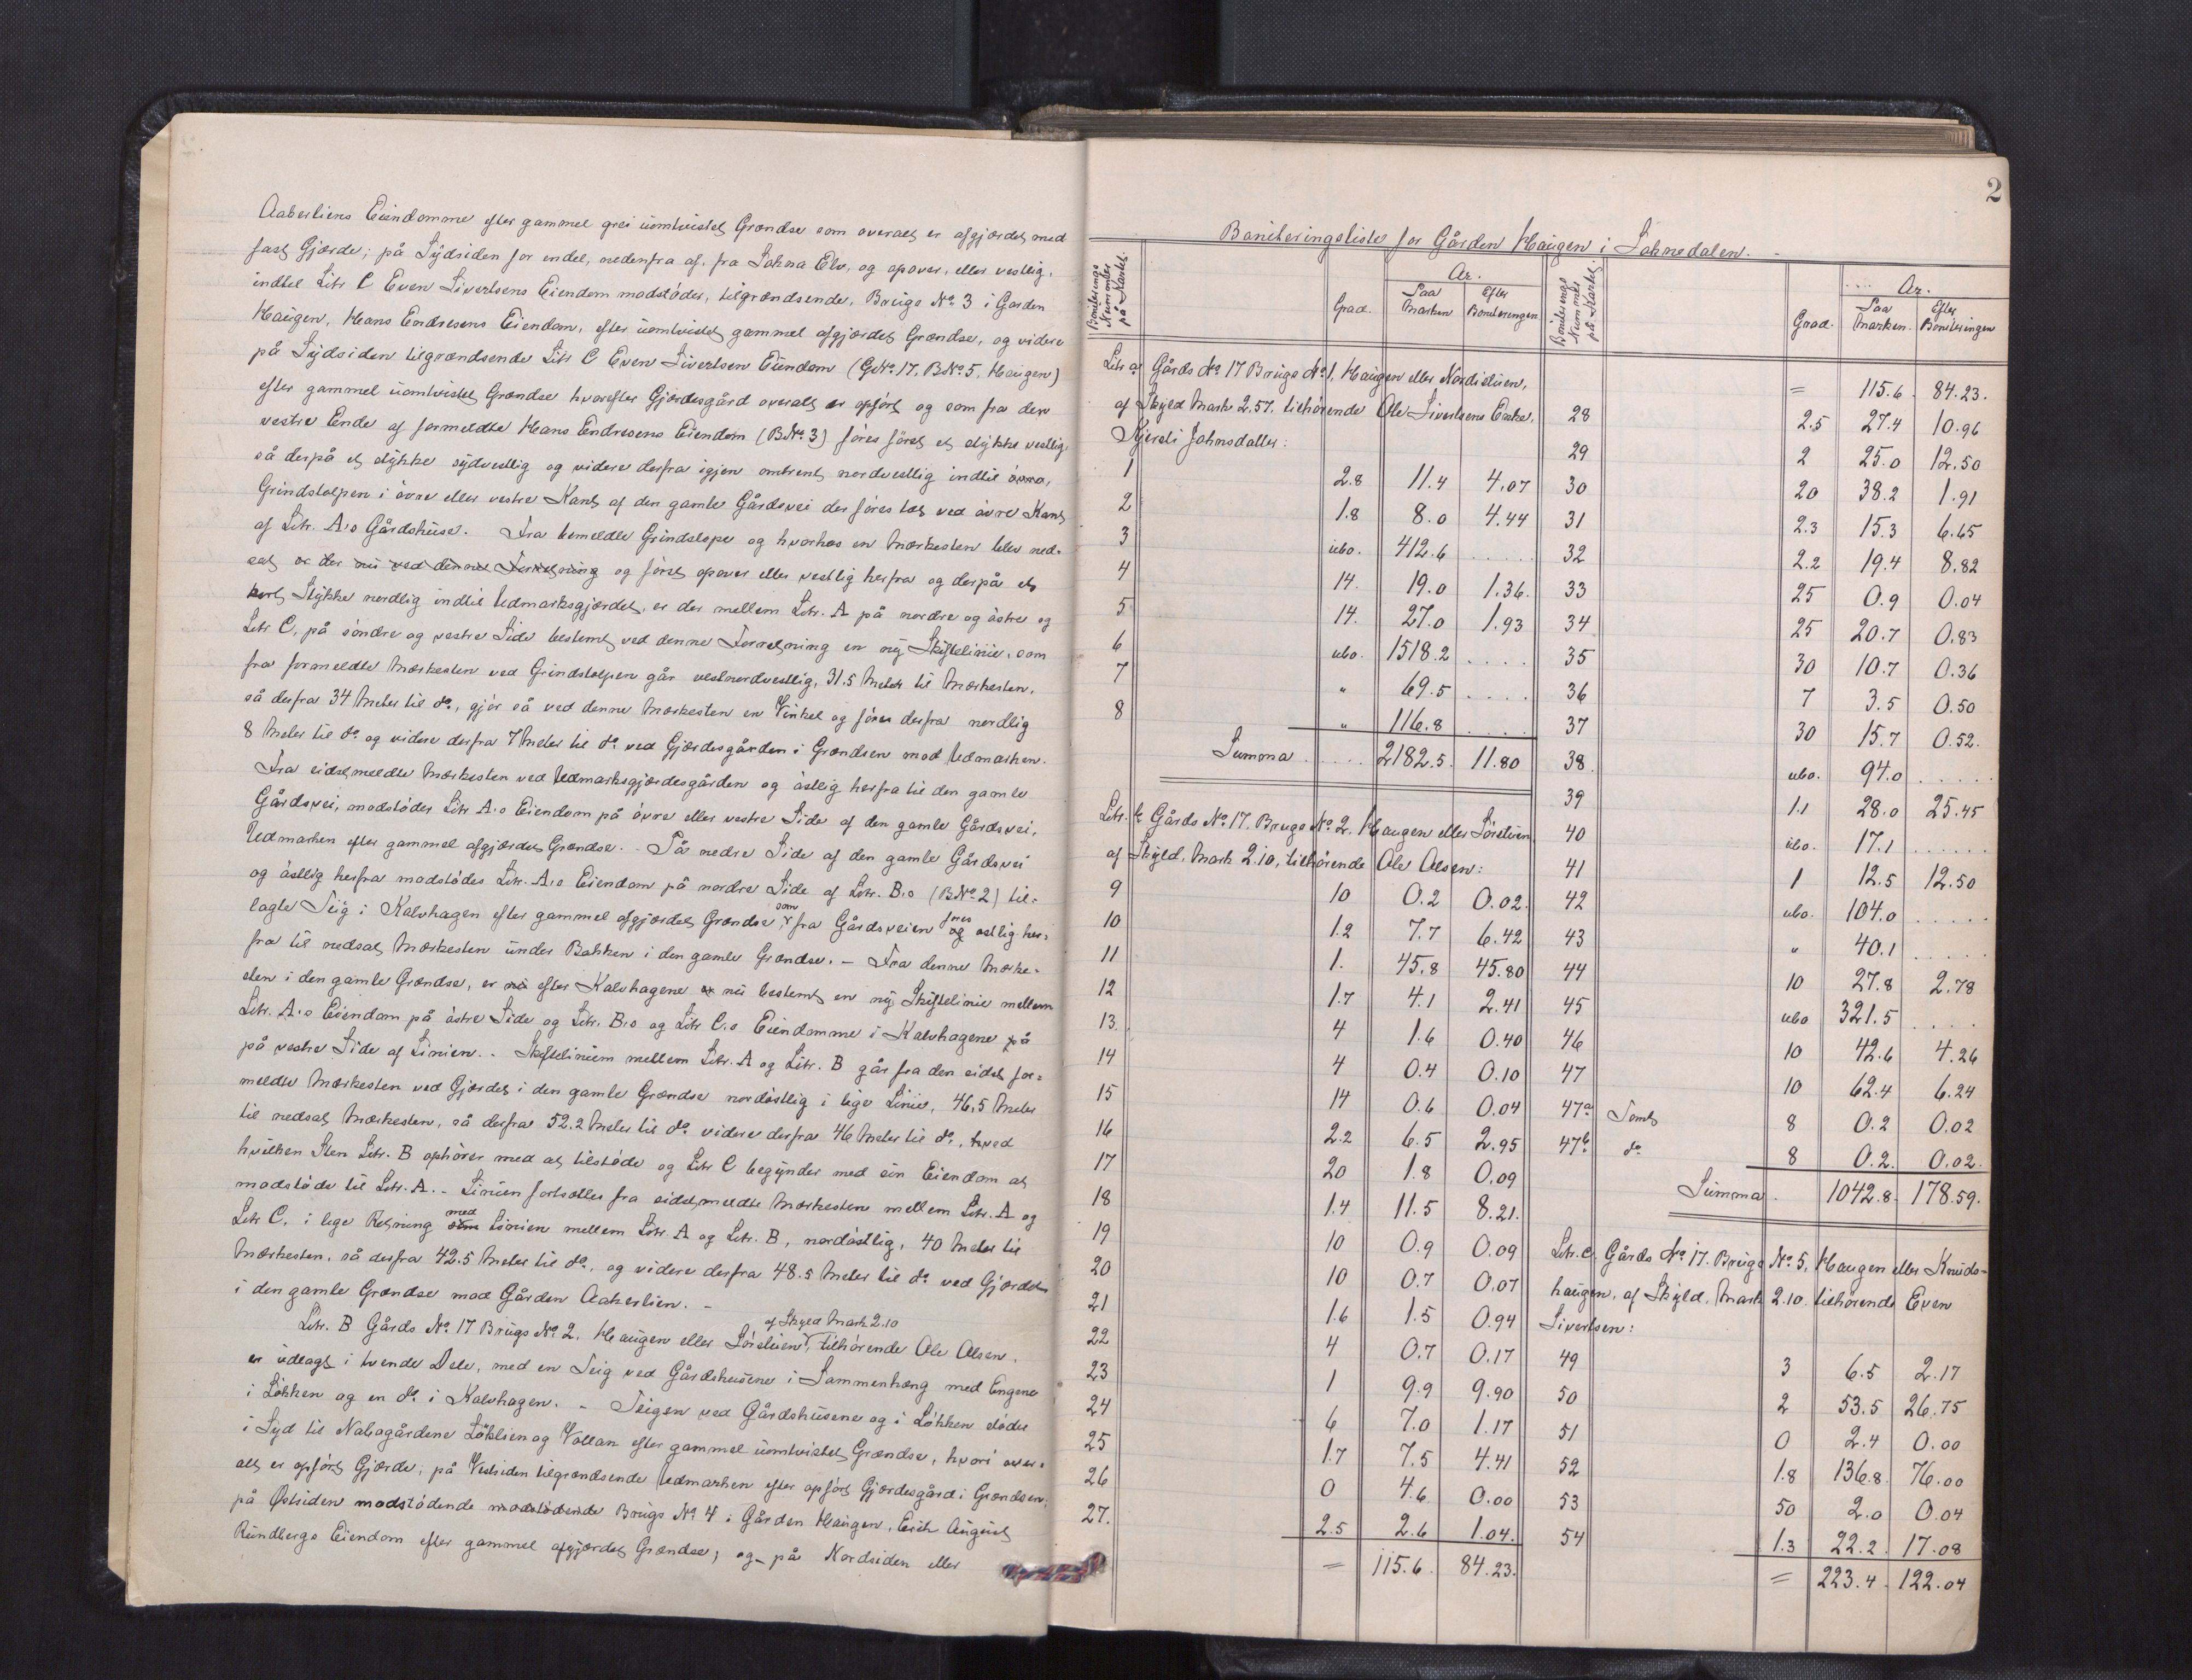 Aaberliens Eiendomme efter gammel grei uomtvistet Grændse som overalt er afgjærdet med
fast Gjærde; på Sydsiden for endel, nedenfra af. fra Sokna Elv, og opover, eller vestlig,
indtil Litr C Even Sivertsens Eiendom modstøder, tilgrændsende, Brugs No 3 i Garden
Haugen, Hans Endresens Eiendom, efter uomtvistet gammel afgjærdet Grændse, og videre
på Sydsiden tilgrændsende Litr C Even Sivertsen Eiendom (G.No. 17, B.No. 5, Haugen)
efter gammel uomtvistet Grændse hvorefter Gjærdesgård overalt er opført og som fra den
vestre Ende af formeldte Hans Endresens Eiendom (B.No. 3) føres først et stykke vestlig,
så derpå et stykke sydvestlig og videre derfra igjen omtrent nordvestlig indtil øvre,
Grindstolpen i øvre eller vestre Kant af den gamle Gårdsvei der føres tæt ved øvre Kant
af Litr. A.s Gårdshuse. Fra bemeldte Grindstope og hvorhos en Mærkesten blev ned-
sat og der nu ved denne Forretning og først opover eller vestlig herfra og derpå et
kort Stykke nordlig indtil Udmarksgjærdet, er der mellem Litr. A på nordre og østre og
Litr C, på søndre og vestre Side bestemt ved denne Forretning en ny Skiftelinie, som
fra formeldte Mærkesten ved Grindstolpen går vestnordvestlig, 31.5 Meter til Mærkesten,
så derfra 34 Meter til do, gjør så ved denne Mærkesten en Vinkel og føres derfra nordlig
8 Meter til do og videre derfra 7 Meter til do ved Gjærdesgården i Grændsen mod Udmarken.
Fra sidstmeldte Mærkesten ved Udmarksgjærdesgården og østlig herfra til den gamle
Gårdsvei, modstøder Litr A.s Eiendom på øvre eller vestre Side af den gamle Gårdsvei,
Udmarken efter gammel afgjærdet Grændse. - På nedre Side af den gamle Gårdsvei
og østlig herfra modstødes Litr. A.s Eiendom på nordre Side af Litr. B.s (B.No. 2) til-
lagte Teig i Kalvhagen efter gammel afgjærdet Grændse som fra Gårdsveien og føres østlig her-
fra til nedsat Mærkesten under Bakken i den gamle Grændse. - Fra denne Mærke-
sten i den gamle Grændse, er nu efter Kalvhagene er nu bestemt en ny Skiftelinie mellem
Litr. A.s Eiendom på østre Side og Litr. B.s og Litr C.s Eiendomme i Kalvhagene på
på vestre Side af Linien. - Skiftelinien mellem Litr. A og Litr. B går fra den sidst for-
meldte Mærkesten ved Gjærdet i den gamle Grændse nordøstlig i lige Linie, 46,5 Meter
til nedsat Mærkesten, så derfra 52.2 Meter til do videre derfra 46 Meter til do, ved
hvilken Sten Litr. B ophører med at tilstøde og Litr C begynder med sin Eiendom at
modstøde til Litr. A. - Linien fortsættes fra sidstmeldte Mærkesten mellem Litr. A og
Litr C, i lige Retning som med Linien mellem Litr. A og Litr. B, nordøstlig, 40 Meter til
Mærkesten, så derfra 42.5 Meter til do, og videre derfra 48.5 Meter til do ved Gjærdet
i den gamle Grændse mod Gården Aakerlien. -
Litr. B Gårds No 17 Brugs No 2, Haugen eller Sørstuen, af Skyld Mark 2.10 tilhørende Ole Olsen,
er udlagt i tvende Dele, med en Teig ved Gårdshusene i Sammenhæng med Engene
i Løkken og en do i Kalvhagen. - Teigen ved Gårdshusene og i Løkken støder
i Syd til Nabogårdene Løklien og Vollan efter gammel uomtvistet Grændse, hvori over-
alt er opført Gjærde; på Vestsiden tilgrændsende Udmarken efter opført Gjærdesgård i Grændsen;
på Østsiden modstødende modstødende Brugs No 4 i Gården Haugen, Erik August
Rundbergs Eiendom efter gammel afgjærdet Grændse; og på Nordsiden eller
2
Boniteringsliste for Gården Haugen i Soknedalen.
Boniterings Nummer på Kartet. Grad. Ar. Paa Marken Efter Boniteringen
Litr a. Gårds No 17 Brugs No 1, Haugen eller Nordistuen,
af Skyld Mark 2.57. tilhørende Ole Sivertsens Enke,
Kjersti Johnsdatter:
1 2.8 11.4 4.07
2 1.8 8.0 4.44
3 ubo. 412.6 .....
4 14. 19.0 1.36.
5 14. 27.0 1.93
6 ubo. 1518.2 ....
7 " 69.5 ....
8 " 116.8 ....
Summa ..... 2182.5. 11.80
Litr. b. Gårds No 17. Brugs No 2. Haugen eller Sørstuen
af Skyld. Mark 2.10, tilhørende Ole Olsen:
9 10 0.2 0.02.
10 1.2 7.7 6.42
11 1. 45.8 45.80
12 1.7 4.1 2.41
13. 4 1.6 0.40
14 4 0.4 0.10
15 14 0.6 0.04
16 2.2 6.5 2.95
17 20 1.8 0.09
18 1.4 11.5 8.21.
19 10 0.9 0.09
20 10 0.7 0.07
21 1.6 1.5 0.94
22 4 0.7 0.17
23 1 9.9 9.90
24 6 7.0 1.17
25 1.7 7.5 4.41
26 0 4.6 0.00
27. 2.5 2.6 1.04.
= 115.6. 84.23.
Boniterings Nummer på Kartet. Grad. Ar. Paa Marken. Efter Boniteringen
= 115.6 84.23.
28 2.5 27.4 10.96
29 2 25.0 12.50
30 20 38.2 1.91
31 2.3 15.3 6.65
32 2.2 19.4 8.82
33 25 0.9 0.04
34 25 20.7 0.83
35 30 10.7 0.36
36 7 3.5 0.50
37 30 15.7 0.52.
38. ubo. 94.0 .....
39 1.1 28.0 25.45
40 ubo. 17.1 ......
41 1 12.5 12.50
42 ubo. 104.0 .....
43 " 40.1 .....
44 10 27.8 2.78
45 ubo 321.5 ....
46 10 42.6 4.26
47 10 62.4 6.24
47a Tomt 8 0.2 0.02
47b do 8 0.2. 0.02.
Summa. 1042.8. 178.59.
Litr. c. Gårds No 17. Brugs No 5, Haugen eller Knuds-
haugen, af Skyld. Mark 2.10. tilhørende Even
Sivertsen:
49 3 6.5 2.17
50 2 53.5 26.75
51 0 2.4 0.00
52 1.8 136.8. 76.00
53 50 2.0 0.04
54 1.3 22.2 17.08
= 223.4. 122.04